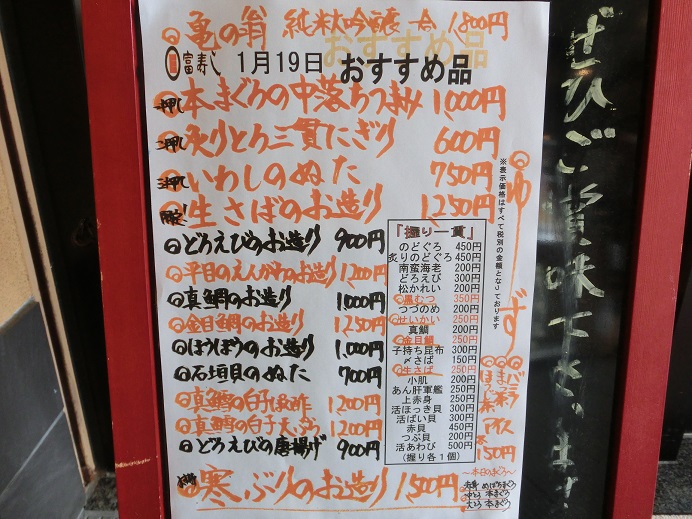 亀の翁 純米大吟醸 一合 1,800円
富寿し 1月19日 おすすめ品
おすすめ品
一押し 本まぐろの中落ちつまみ 1,000円
二押し 炙りとろ三貫にぎり 600円
三押し いわしのぬた 750円
生さばのお造り 1,250円
どろえびのお造り 900円
平目のえんがわのお造り 1,200円
真鯛のお造り 1,000円
金目鯛のお造り 1,250円
ほうぼうのお造り 1,000円
石垣貝のぬた 700円
真鱈の白子ポン酢 1,200円
真鱈の白子天ぷら 1,200円
どろえびの唐揚げ 900円
寒ぶりのお造り 1,500円
「握り一貫」
のどぐろ 450円
炙りのどぐろ 450円
南蛮海老 200円
どろえび 300円
松かれい 200円
黒むつ 350円
つづのめ 200円
せいかい 250円
真鯛 200円
金目鯛 250円
子持ち昆布 300円
〆さば 150円
生さば 250円
小肌 200円
あん肝軍艦 250円
上赤身 250円
活ほっき貝 300円
活ばい貝 300円
赤貝 450円
つぶ貝 200円
活あわび 500円
(握り各1個)
※表示価格はすべて税別の金額となっております
ゆず
バニラ
まっ茶
ほうじ茶
アイス
150円
〜本日のまぐろ〜
赤身 めばちまぐろ
中とろ 本まぐろ
大とろ 本まぐろ
ぜひご賞味下さいませ!